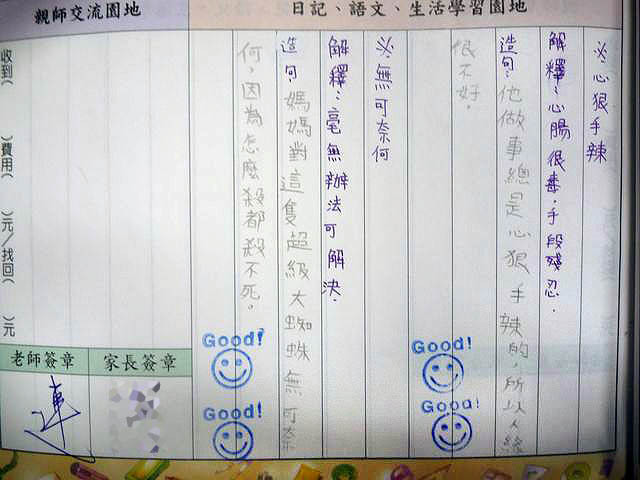 日記、語文、生活學習園地
※心狠手辣
解釋：心腸很毒，手段殘忍。
造句：他做事總是心狠手辣的，所以人緣
很不好。
※無可奈何
解釋：毫無辦法可解決。
造句：媽媽對這隻超級大蜘蛛無可奈
何，因為怎麼殺都殺不死。
Good!
Good!
Good!
Good!
親師交流園地
收到(　　)費用(　　)元/找回(　　)元
家長簽章
老師簽章
連